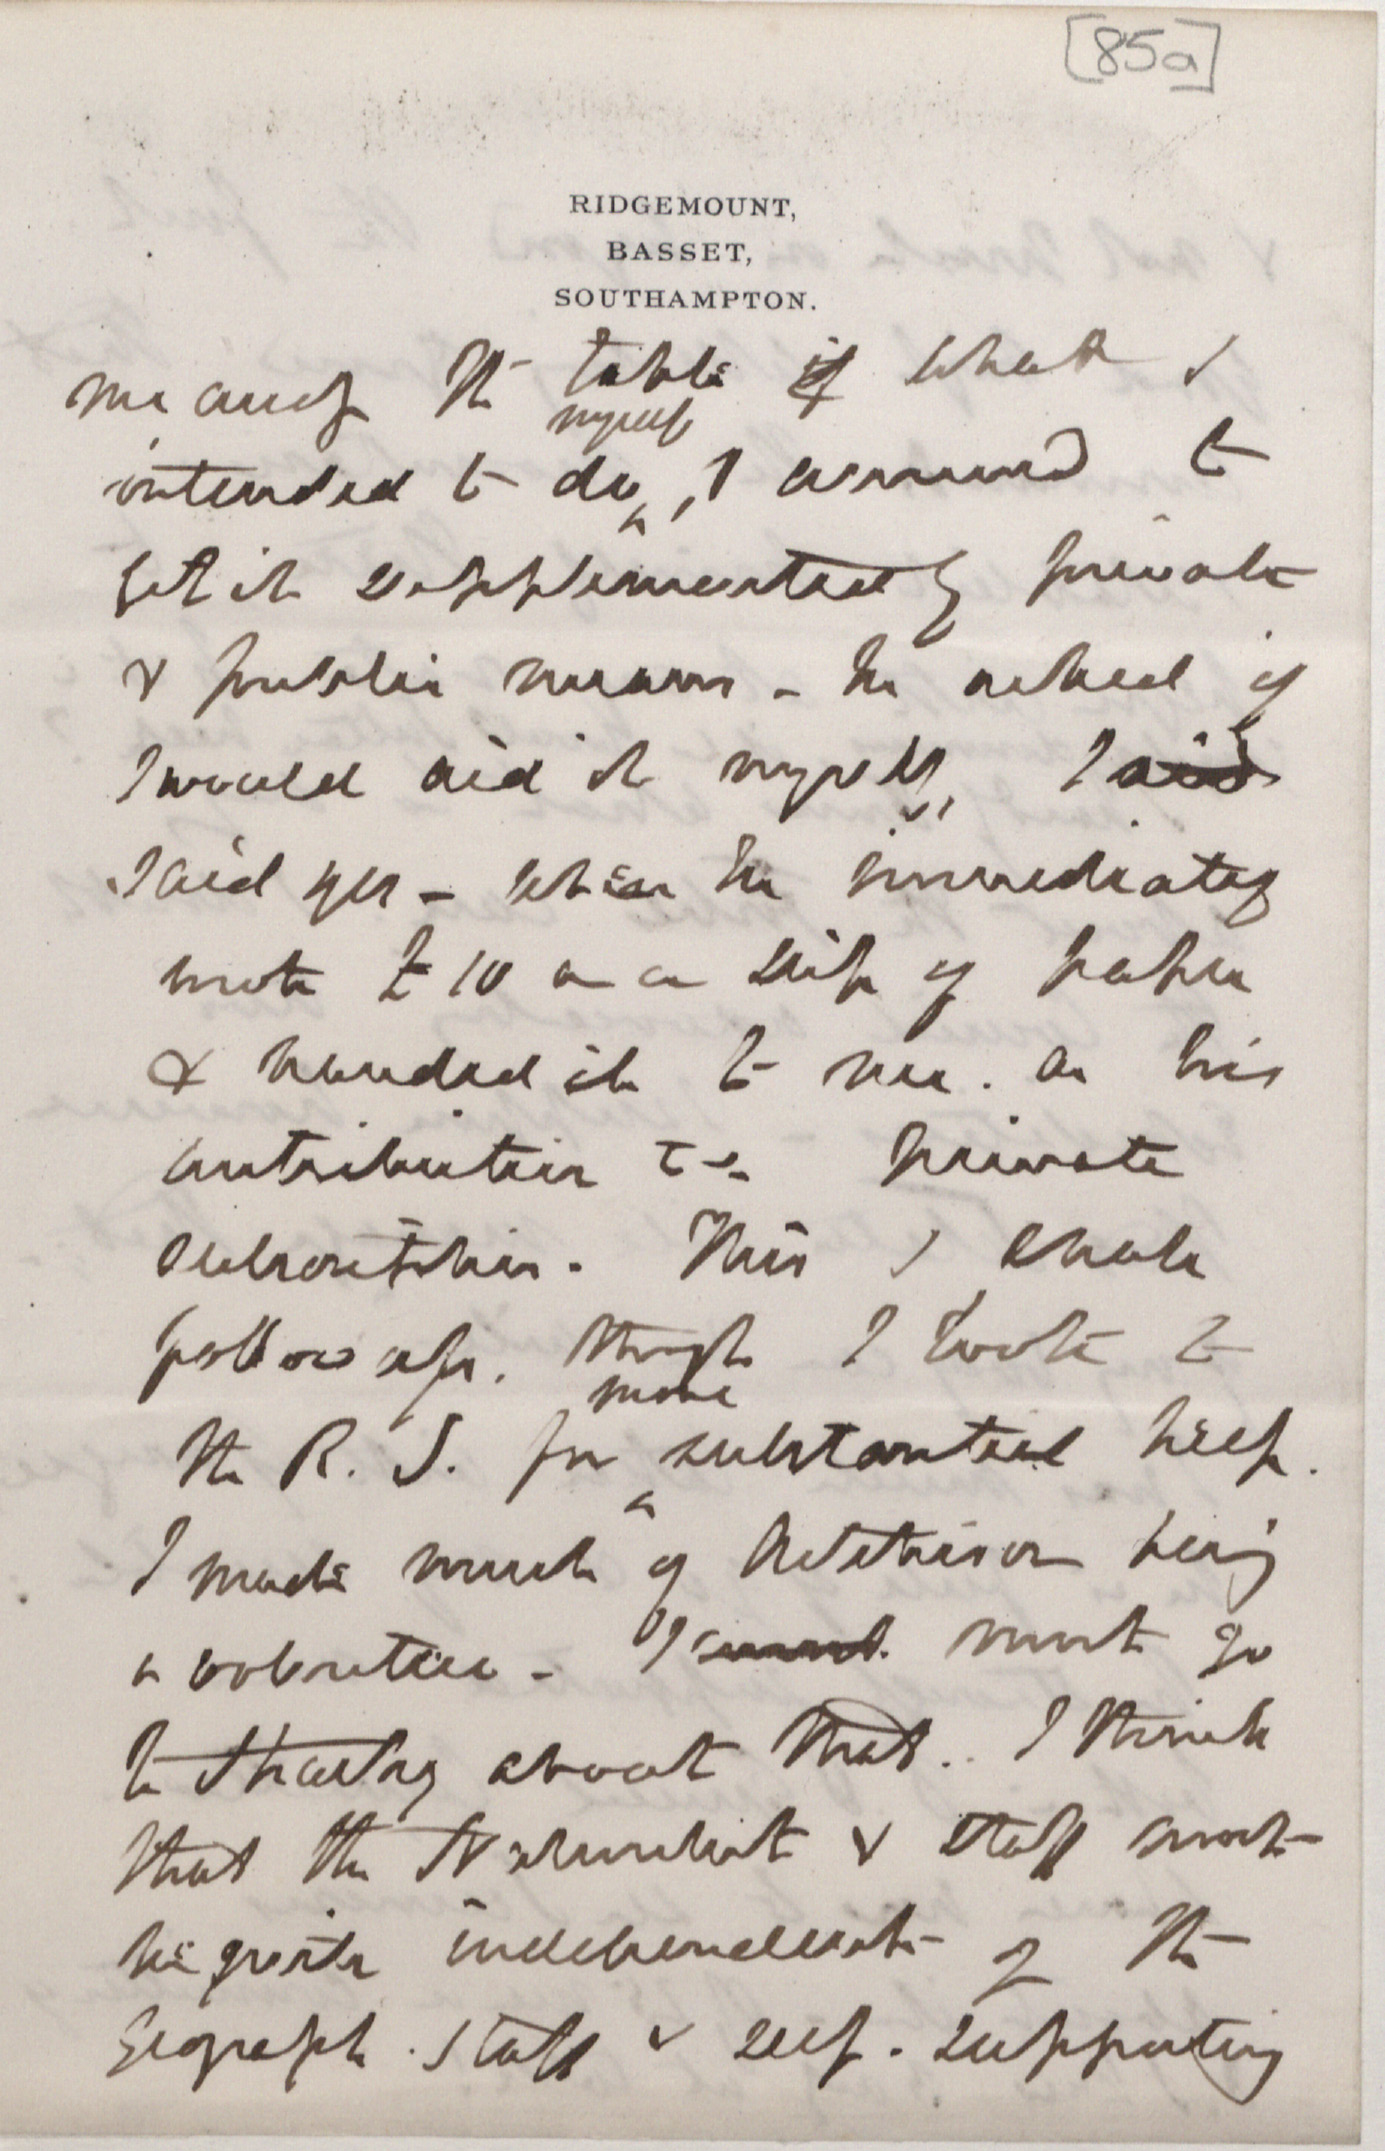 [85a]
RIDGEMOUNT,
BASSET,
SOUTHAMPTON.
me across the table if what I
intended to do ^myself, I answered to
get it supplemented by private
& public means - he asked if
I would aid it myself, I aid
said yes - when he immediately
wrote £10 on a slip of paper
& handed it to me. as his
contribution to a private
subscription. This I shall
follow up. though I wrote to
the R. S. for ^more substantial help.
I made much of Aitchison being
a volunteer - I must go
to Thuillier about that. I think
that the Naturalist & staff must
be quite independent of the
Geograph. Staff & self-supporting